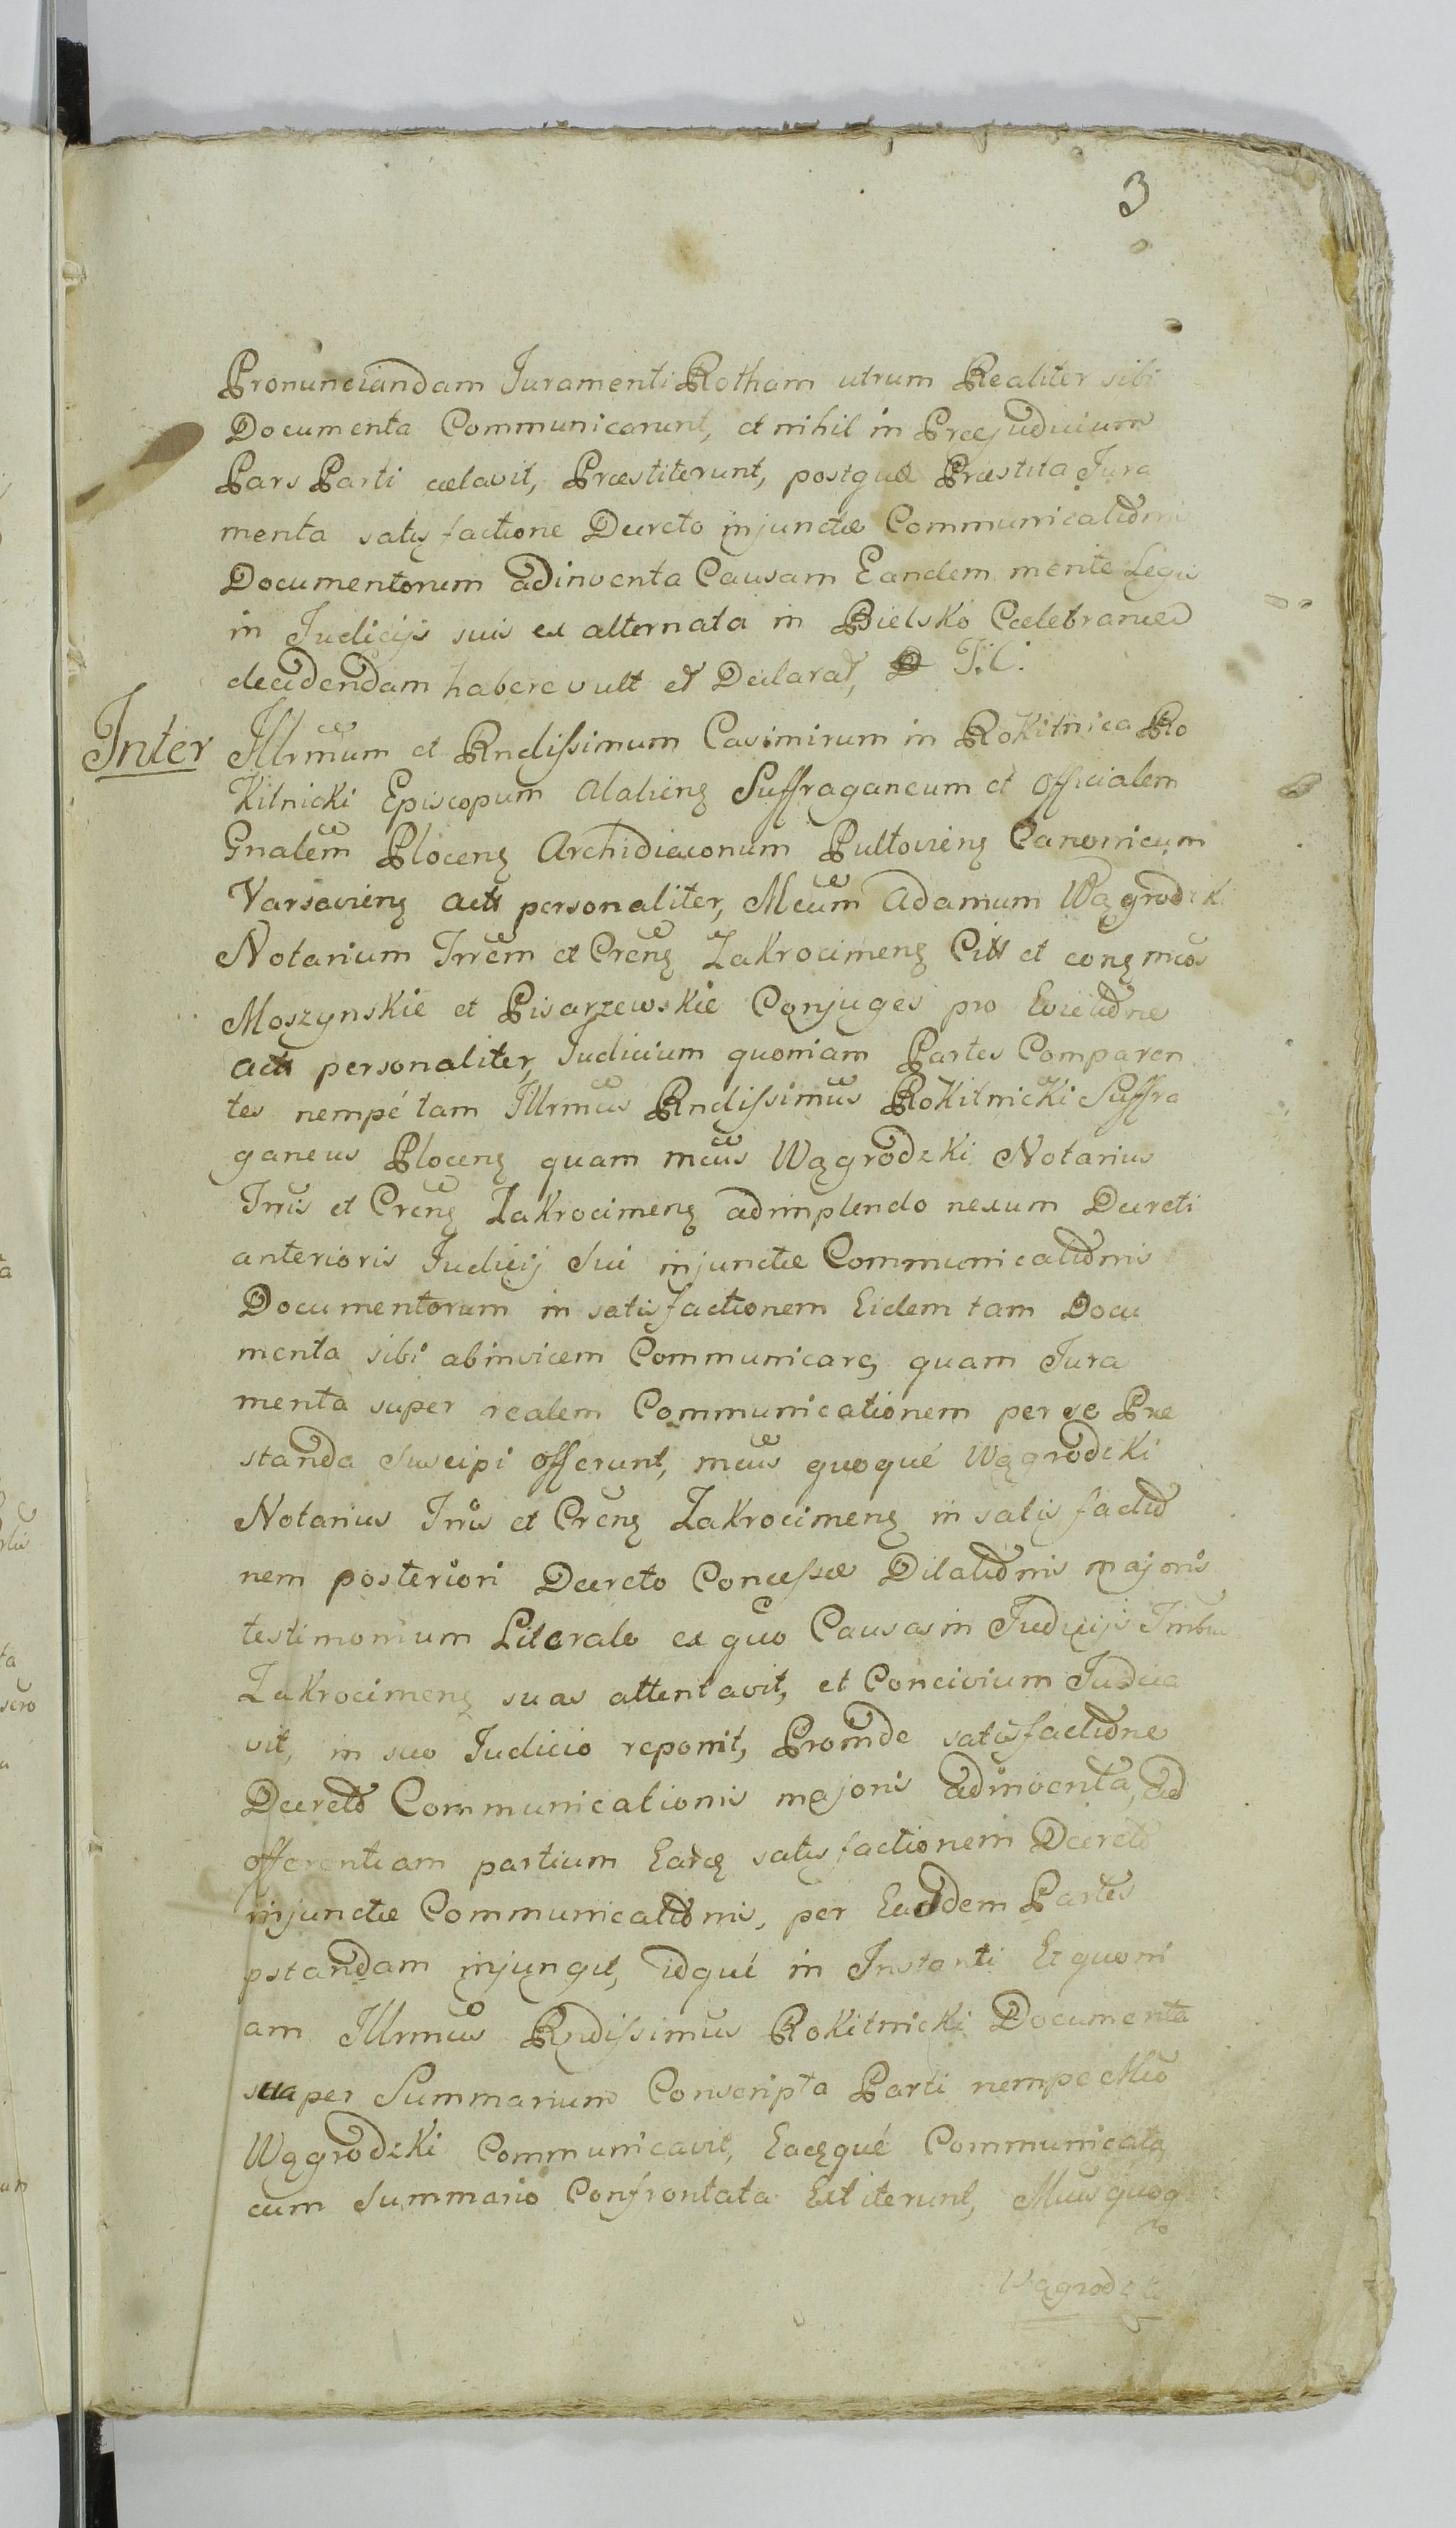 3
Pronunciandam Juramenti Rotham utrum Realiter sibi
Documenta Communicarunt, et nihil in Præjudicium
Pars Parti cælavit, Præstiterunt, postquæ Præstita Jura
menta satisfactione Decreto injunctæ Communicationis
Documentorum adinventa Causam Eandem mente Legis
in Judicijs suis ex alternata in Bielsko Cælebrandis
decidendam habere vult et Declarat, J. C.
Inter Illrmum et Rndissimum Casimirum in Rokitnica Ro
kitnicki Episcopum Alaliens Suffraganeum et Officialem
Gnalem Ploceng Archidiaconum Pultovieng Canonicum
Varsavieng act personaliter, Mcum Adamum Wągrodzk
Notarium Trrem et Creng Zakrocimeng Citt et cong mcos
Moszynskie et Pisarzewskie Conjuges pro Evictione
act personaliter, Judicium quoniam Partes Comparen
tes nempé tam Illrmus Rndissimus Rokitnicki Suffra
ganeus Ploceng quam mcus Wągrodzki Notarius
Trris et Creng Zakrocimeng adimplendo nexum Decreti
anterioris Judicij Sui injunctæ Communicationis
Documentorum in satisfactionem Eidem tam Docu
menta sibi abinvicem Communicare, quam Jura
menta super realem Communicationem per se Præ
standa suscipi offerunt, mcus quoqué Wągrodzki
Notarius Trris et Creng Zakrocimeng in satisfactio
nem posteriori Decreto Concessæ Dilationis majoris
testimonium Literale ex quo Causas in Judicijs
Zakrocimeng suas attentavit, et Concivium Judica
vit, in suo Judicio reponit, Proinde satisfactione
Decreto Communicationis majoris adinventa, ad
offerentiam partium satisfactionem Decreto
injunctæ Communicationis, per Easdem Partes
pstandam injungit, idqué in Instanti Et quoni
am Illrmus Rndissimus Rokitnicki Documenta
sua per Summarium Conscripta Parti nempe Mco
Wągrodzki Communicavit, Eaqué Communicata
cum Summario Confrontata Extiterunt, Mcus quoq
Wągrodzki